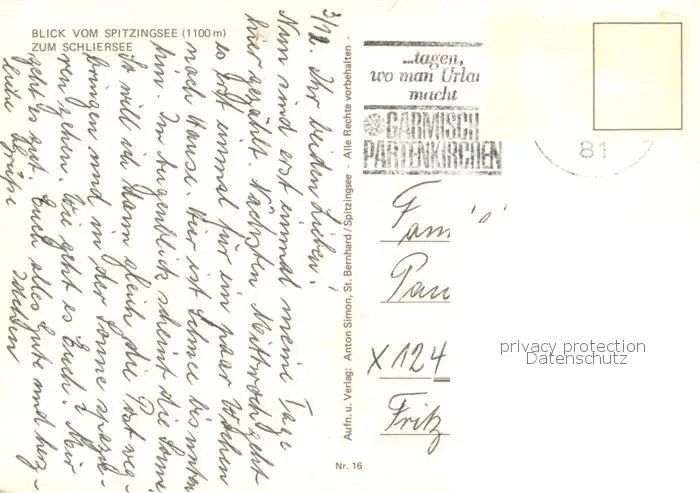 BLICK VOM SPITZINGSEE (1100 m)
ZUM SCHLIERSEE
3/12. Ihr beiden Lieben!
Nun sind erst einmal meine Tage
hier gezählt. Nächsten Mittwoch geht
es erst einmal für ein paar Wochen
nach Hause. Hier ist Schnee bis unten
hin. Im Augenblick scheint die Sonne
So will ich dann gleich die Post weg-
bringen und in der Sonne spazie-
ren gehen. Wie geht es Euch? Mir
geht es gut. Euch alles Gute und herz-
liche Grüße
Aufn. u. Verlag: Anton Simon, St. Bernhard/Spitzingsee - Alle Rechte vorbehalten -
Nr. 16
...tagen,
wo man Urlau
macht
GARMISCH
PARTENKIRCHEN
81
Fam
Pau
X 124
Fritz
privacy protection
Datenschutz